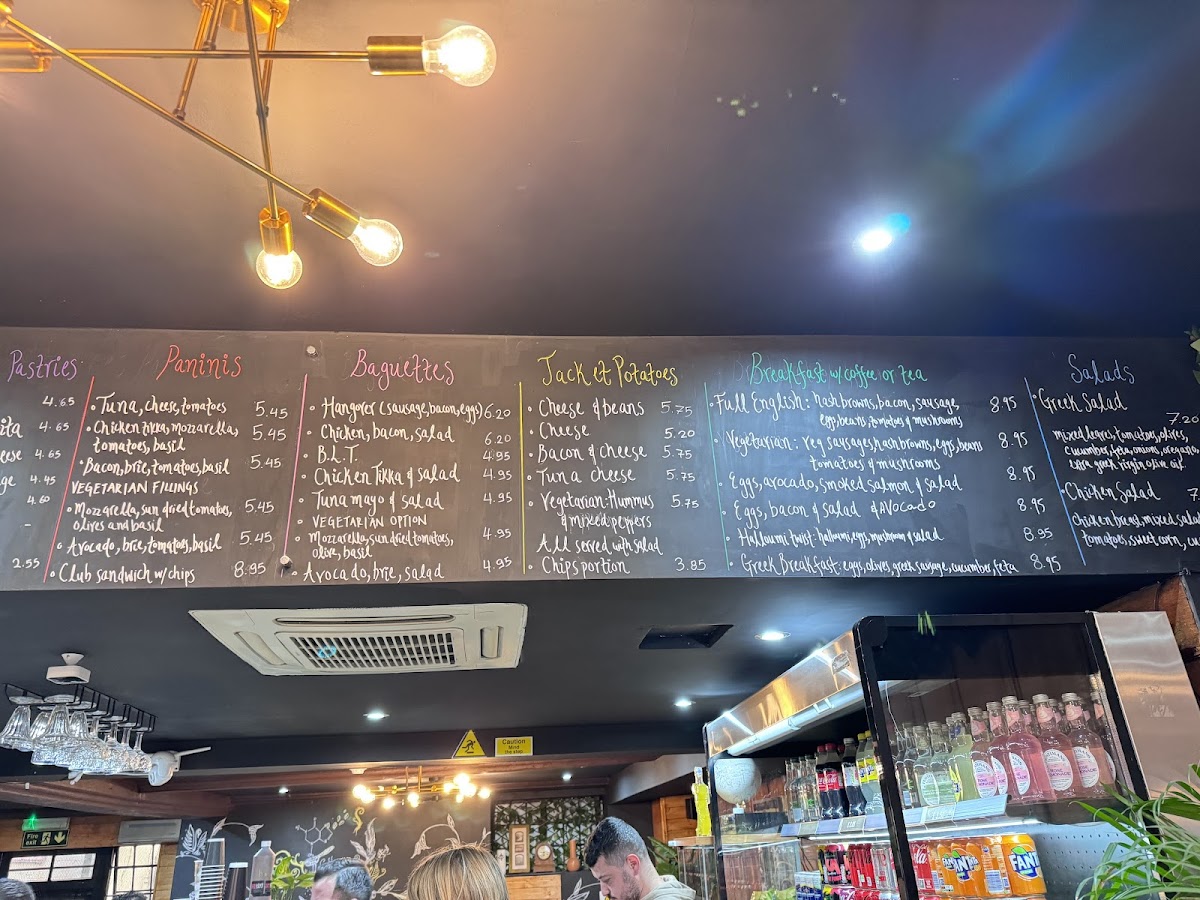 Pastries
4.65
4.65
4.65
4.45
4.60
2.55
Paninis
• Tuna, cheese, tomatoes 5.45
• Chicken tikka, mozzarella, 5.45
tomatoes, basil
• Bacon, brie, tomatoes, basil 5.45
VEGETARIAN FILLINGS
• Mozzarella, sun dried tomatoes, 5.45
olives and basil
• Avocado, brie, tomatoes, basil 5.45
• Club sandwich w/ chips 8.95
Baguettes
• Hangover (sausage, bacon, eggs) 6.20
• Chicken, bacon, salad 6.20
• B.L.T. 4.95
• Chicken Tikka & salad 4.95
• Tuna mayo & salad 4.95
• VEGETARIAN OPTION
• Mozzarella, sun dried tomatoes, 4.95
olive, basil
• Avocado, brie, salad 4.95
Jacket Potatoes
• Cheese & beans 5.75
• Cheese 5.20
• Bacon & cheese 5.75
• Tuna cheese 5.75
• Vegetarian: Hummus 5.75
& mixed peppers
All served with salad
• Chips portion 3.85
Breakfast w/ coffee or tea
• Full English: hash browns, bacon, sausage, 8.95
eggs, beans, tomatoes & mushrooms
• Vegetarian: veg sausages, hash browns, eggs, beans 8.95
tomatoes & musrooms
• Eggs, avocado, smoked salmon & salad 8.95
• Eggs, bacon & salad & Avocado 8.95
• Halloumi twist: halloumi, eggs, mushroom & salad 8.95
• Greek Breakfast: eggs, olives, greek sausage, cucumber, feta 8.95
Salads
• Greek Salad
7.20
mixed leaves, tomatoes, olives,
cucumber, feta, onions, oregano,
extra greek virgin olive oil
• Chicken Salad
Chicken breast, mixed salad
tomatoes, sweet corn,
Caution
Mind
the step
Fire
exit
FANTA